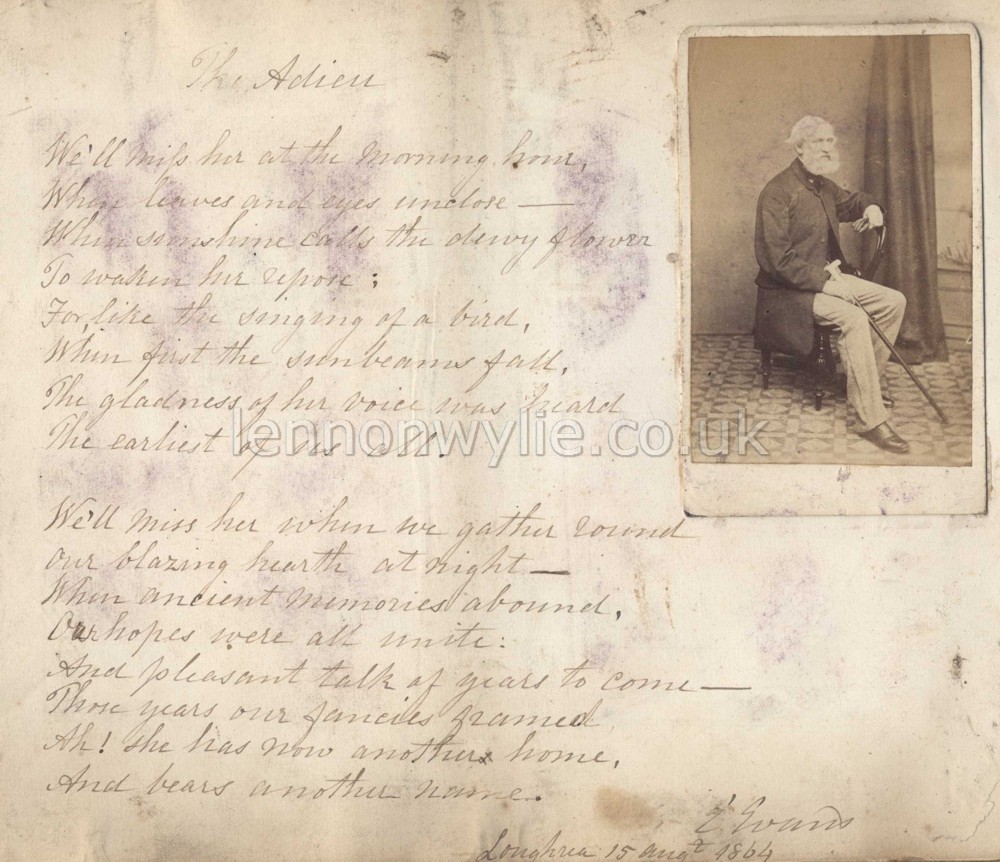 The Adieu
We'll miss her at the morning hour,
When leaves and eyes unclose —
When sunshine calls the dewy flower
To waken her repose;
For, like the singing of a bird,
When first the sunbeams fall,
The gladness of her voice was heard
The earliest of us all.
lennonwylie.co.uk
We'll miss her when we gather round
our blazing hearth at night —
When ancient memories abound,
Or hopes were all unite:
And pleasant talk of years to come —
Those years our fancies framed
Ah! she has now another home,
And bears another name.
E Evans
Loughrea 15 augt 1864